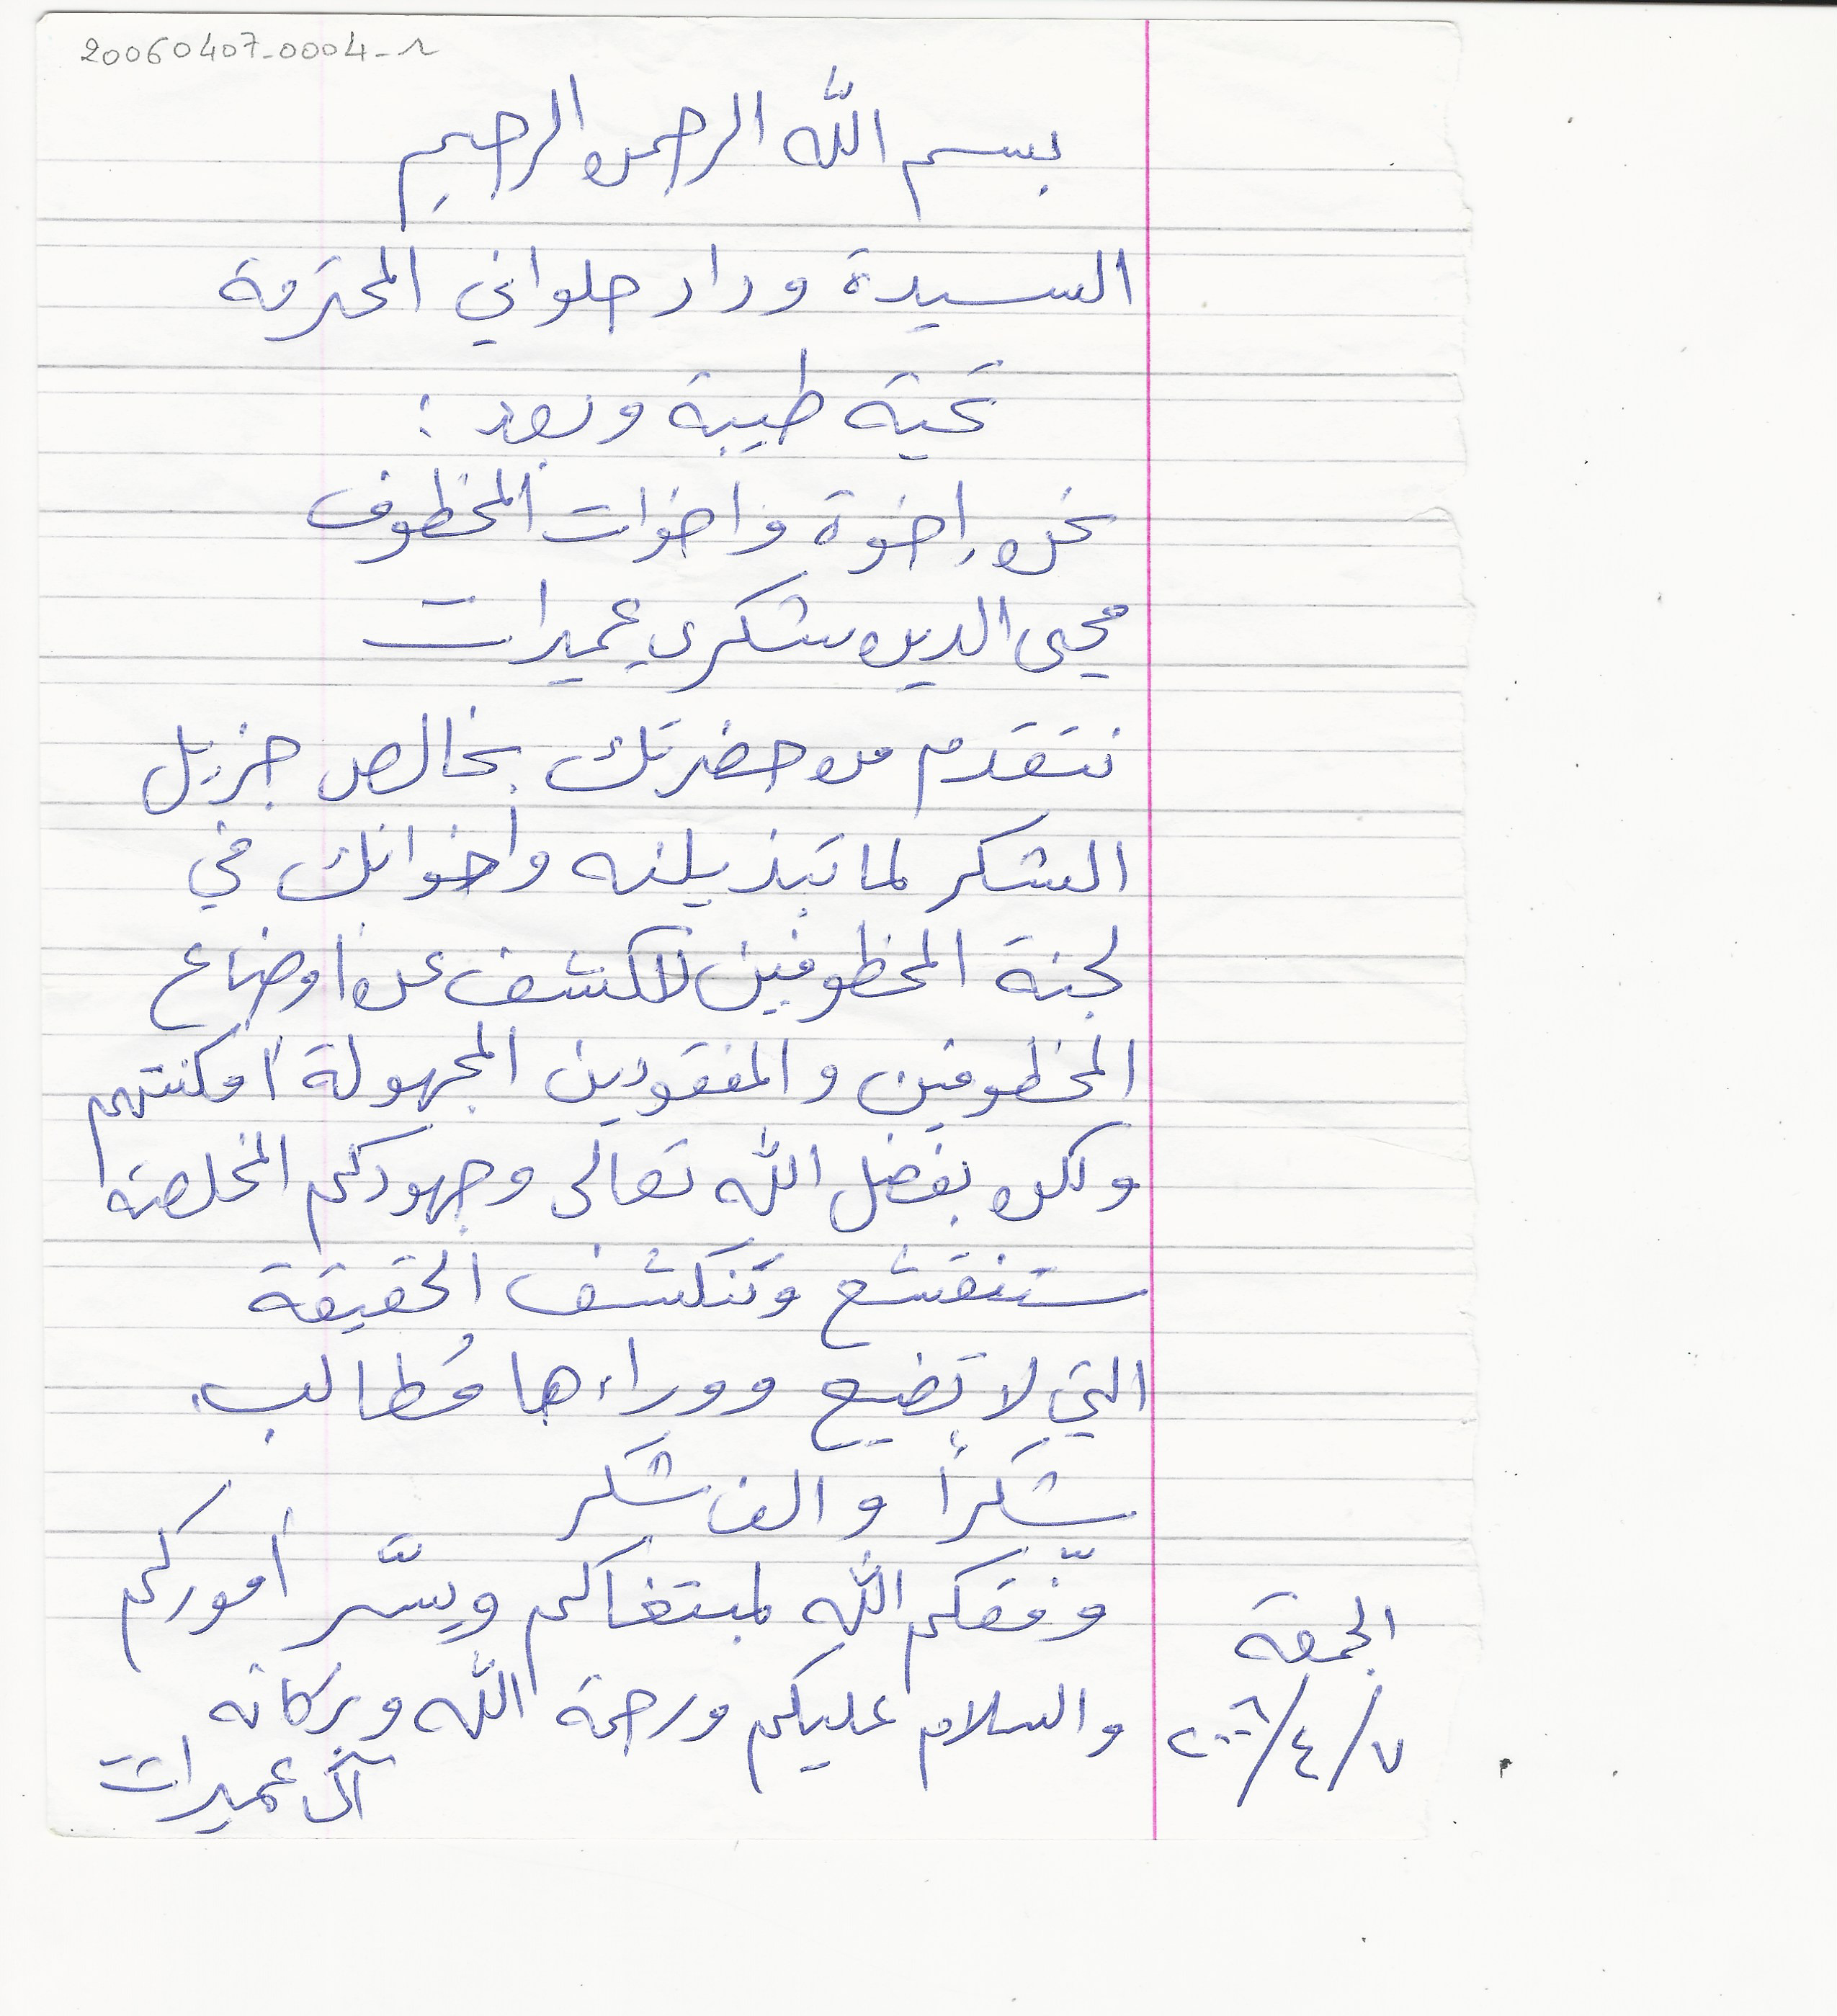 20060407-0004-r
بسم الله الرحمن الرحيم
السيدة وداد حلواني المحترمة
تحية طيبة وبعد :
نحن إخوة واخوات المخطوف
محيي الدين شكري عميرات
نتقدم من حضرتك بخالص جزيل
الشكر لما تبذيلنه واخوانك في
لجنة المخطوفين للكشف عن اوضاع
المخطوفين والمفقودين المجهولة أمكنتهم
ولكن بفضل الله تعالى وجهودكم المخلصة
ستنقشع وتنكشف الحقيقة
التي لا تضيع ووراءها مُطالب.
شكراً والف شكر
وفّقكم الله لمبتغاكم ويسَّر أموركم
والسلام عليكم ورحمة الله وبركاته
آل عميرات
الجمعة
٧/٤/٢٠٠٦